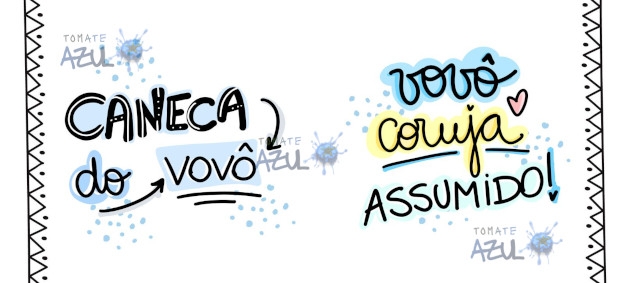 TOMATE
AZUL
CANECA
do VOVÔ
TOMATE
AZUL
vovô
coruja
ASSUMIDO!
TOMATE
AZUL